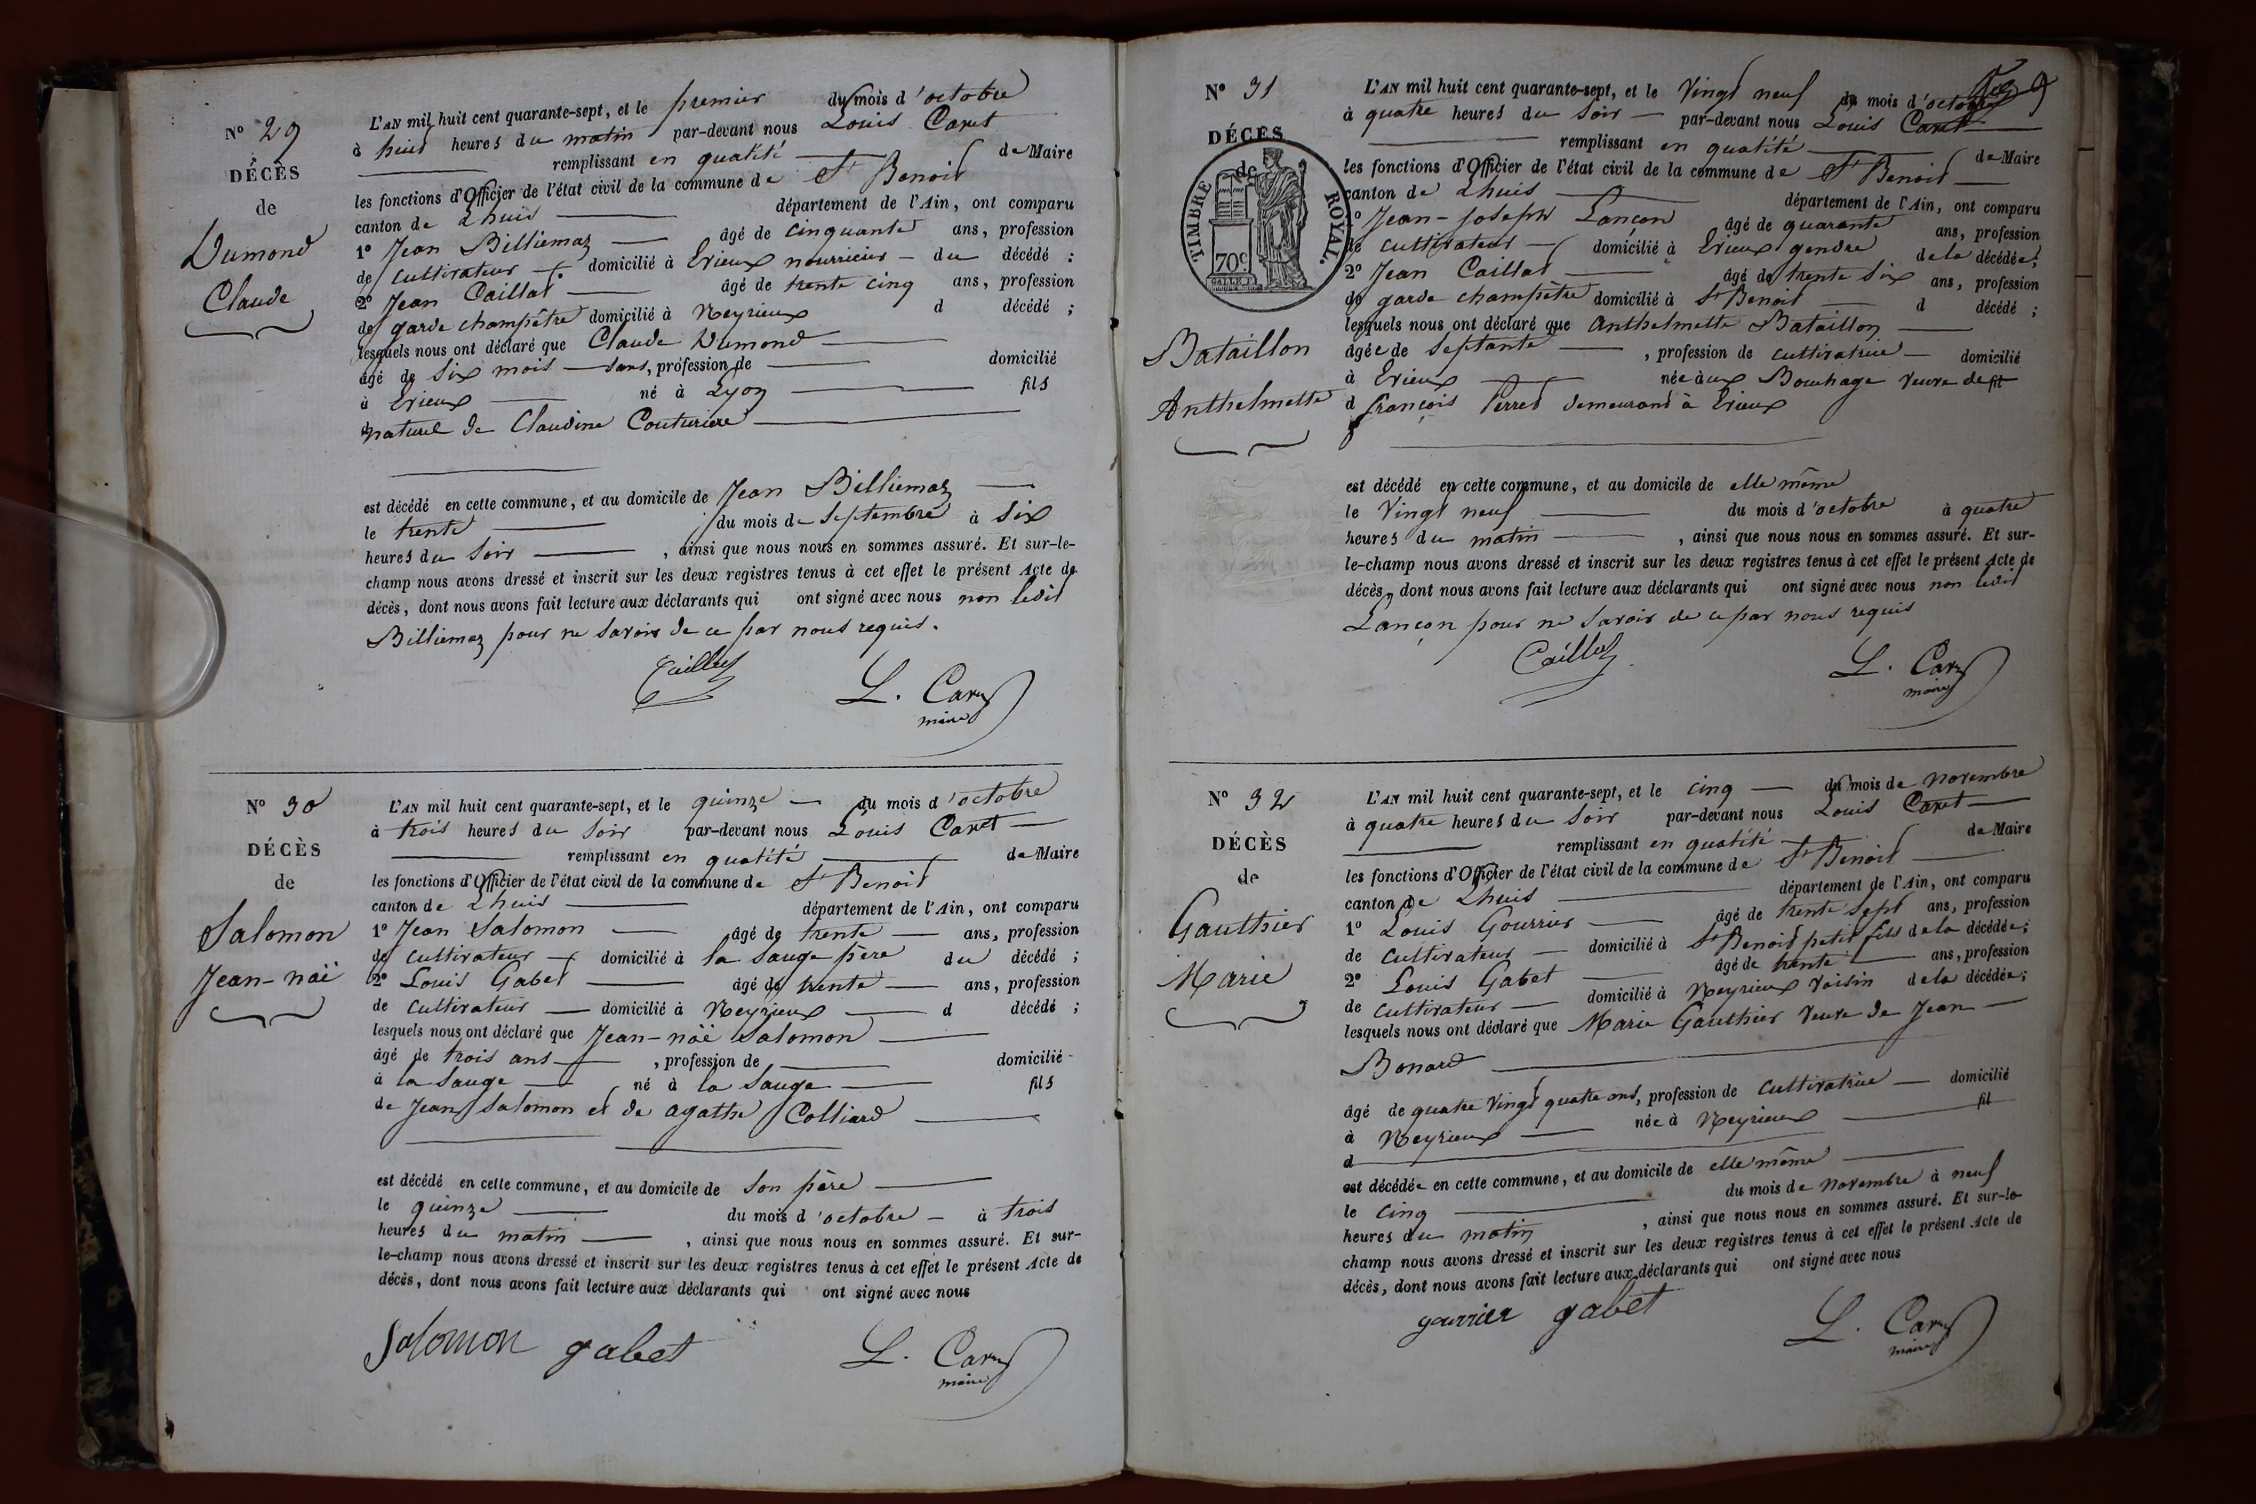 N° 29
DÉCÈS
de
Dumond
Claude
L'AN mil huit cent quarante-sept, et le premier du mois d'octobre
à huit heures du matin par-devant nous Louis Caret
remplissant en qualité de Maire
les fonctions d'Officier de l'état civil de la commune de St Benoit
canton de Lhuis département de l'Ain, ont comparu
1° Jean Billiemaz âgé de cinquante ans, profession
de cultivateur domicilié à Erieux nourricier du décédé ;
2° Jean Caillat âgé de trente cinq ans, profession
de garde champêtre domicilié à Neyrieux d décédé ;
lesquels nous ont déclaré que Claude Dumond
âgé de six mois sans, profession de domicilié
à Erieux né à Lyon fils
naturel de Claudine Couturiere
est décédé en cette commune, et au domicile de Jean Billiemaz
le trente du mois de Septembre à six
heures du soir , ainsi que nous nous en sommes assuré. Et sur-le-
champ nous avons dressé et inscrit sur les deux registres tenus à cet effet le présent Acte de
décès, dont nous avons fait lecture aux déclarants qui ont signé avec nous non ledit
Billiemaz pour ne savoir de ce par nous requis.
Caillat
L. Caret
maire
N° 30
DÉCÈS
de
Salomon
Jean-noë
L'AN mil huit cent quarante-sept, et le quinze du mois d'octobre
à trois heures du soir par-devant nous Louis Caret
remplissant en qualité de Maire
les fonctions d'Officier de l'état civil de la commune de St Benoit
canton de Lhuis département de l'Ain, ont comparu
1° Jean Salomon âgé de trente ans, profession
de cultivateur domicilié à la Sauge père du décédé ;
2° Louis Gabet âgé de trente ans, profession
de cultivateur domicilié à Neyrieux d décédé ;
lesquels nous ont déclaré que Jean-noë Salomon
âgé de trois ans , profession de domicilié
à la Sauge né à la Sauge fils
de Jean Salomon et de agathe Colliard
est décédé en cette commune, et au domicile de son père
le quinze du mois d'octobre à trois
heures du matin , ainsi que nous nous en sommes assuré. Et sur-
le-champ nous avons dressé et inscrit sur les deux registres tenus à cet effet le présent Acte de
décès, dont nous avons fait lecture aux déclarants qui ont signé avec nous
Salomon gabet
L. Caret
maire
N° 31
DÉCÈS
de
TIMBRE ROYAL.
70c
Bataillon
Anthelmette
L'AN mil huit cent quarante-sept, et le vingt neuf du mois d'octobre
à quatre heures du soir par-devant nous Louis Caret
remplissant en qualité de Maire
les fonctions d'Officier de l'état civil de la commune de St Benoit
canton de Lhuis département de l'Ain, ont comparu
1° Jean-joseph Lançon âgé de quarante ans, profession
de cultivateur domicilié à Erieux gendre de la décédée ;
2° Jean Caillat âgé de trente six ans, profession
de garde champêtre domicilié à St Benoit d décédé ;
lesquels nous ont déclaré que anthelmette Bataillon
âgée de septante , profession de cultivatrice domicilié
à Erieux née aux Bouchage veuve de fil
d françois Perret demeurant à Erieux
est décédé en cette commune, et au domicile de elle même
le vingt neuf du mois d'octobre à quatre
heures du matin , ainsi que nous nous en sommes assuré. Et sur-
le-champ nous avons dressé et inscrit sur les deux registres tenus à cet effet le présent Acte de
décès, dont nous avons fait lecture aux déclarants qui ont signé avec nous non ledit
Lançon pour ne savoir de ce par nous requis
Caillat
L. Caret
maire
N° 32
DÉCÈS
de
Gauthier
Marie
L'AN mil huit cent quarante-sept, et le cinq du mois de novembre
à quatre heures du soir par-devant nous Louis Caret
remplissant en qualité de Maire
les fonctions d'Officier de l'état civil de la commune de St Benoit
canton de Lhuis département de l'Ain, ont comparu
1° Louis Gourrier âgé de trente sept ans, profession
de cultivateur domicilié à St Benoit petit fils de la décédée ;
2° Louis Gabet âgé de trente ans, profession
de cultivateur domicilié à Neyrieux voisin de la décédée ;
lesquels nous ont déclaré que Marie Gauthier veuve de Jean
Bonard
âgé de quatre vingt quatre ans, profession de cultivatrice domicilié
à Neyrieux née à Neyrieux fil
d
est décédée en cette commune, et au domicile de elle même
le cinq du mois de novembre à neuf
heures du matin , ainsi que nous nous en sommes assuré. Et sur-le-
champ nous avons dressé et inscrit sur les deux registres tenus à cet effet le présent Acte de
décès, dont nous avons fait lecture aux déclarants qui ont signé avec nous
gourrier gabet
L. Caret
maire